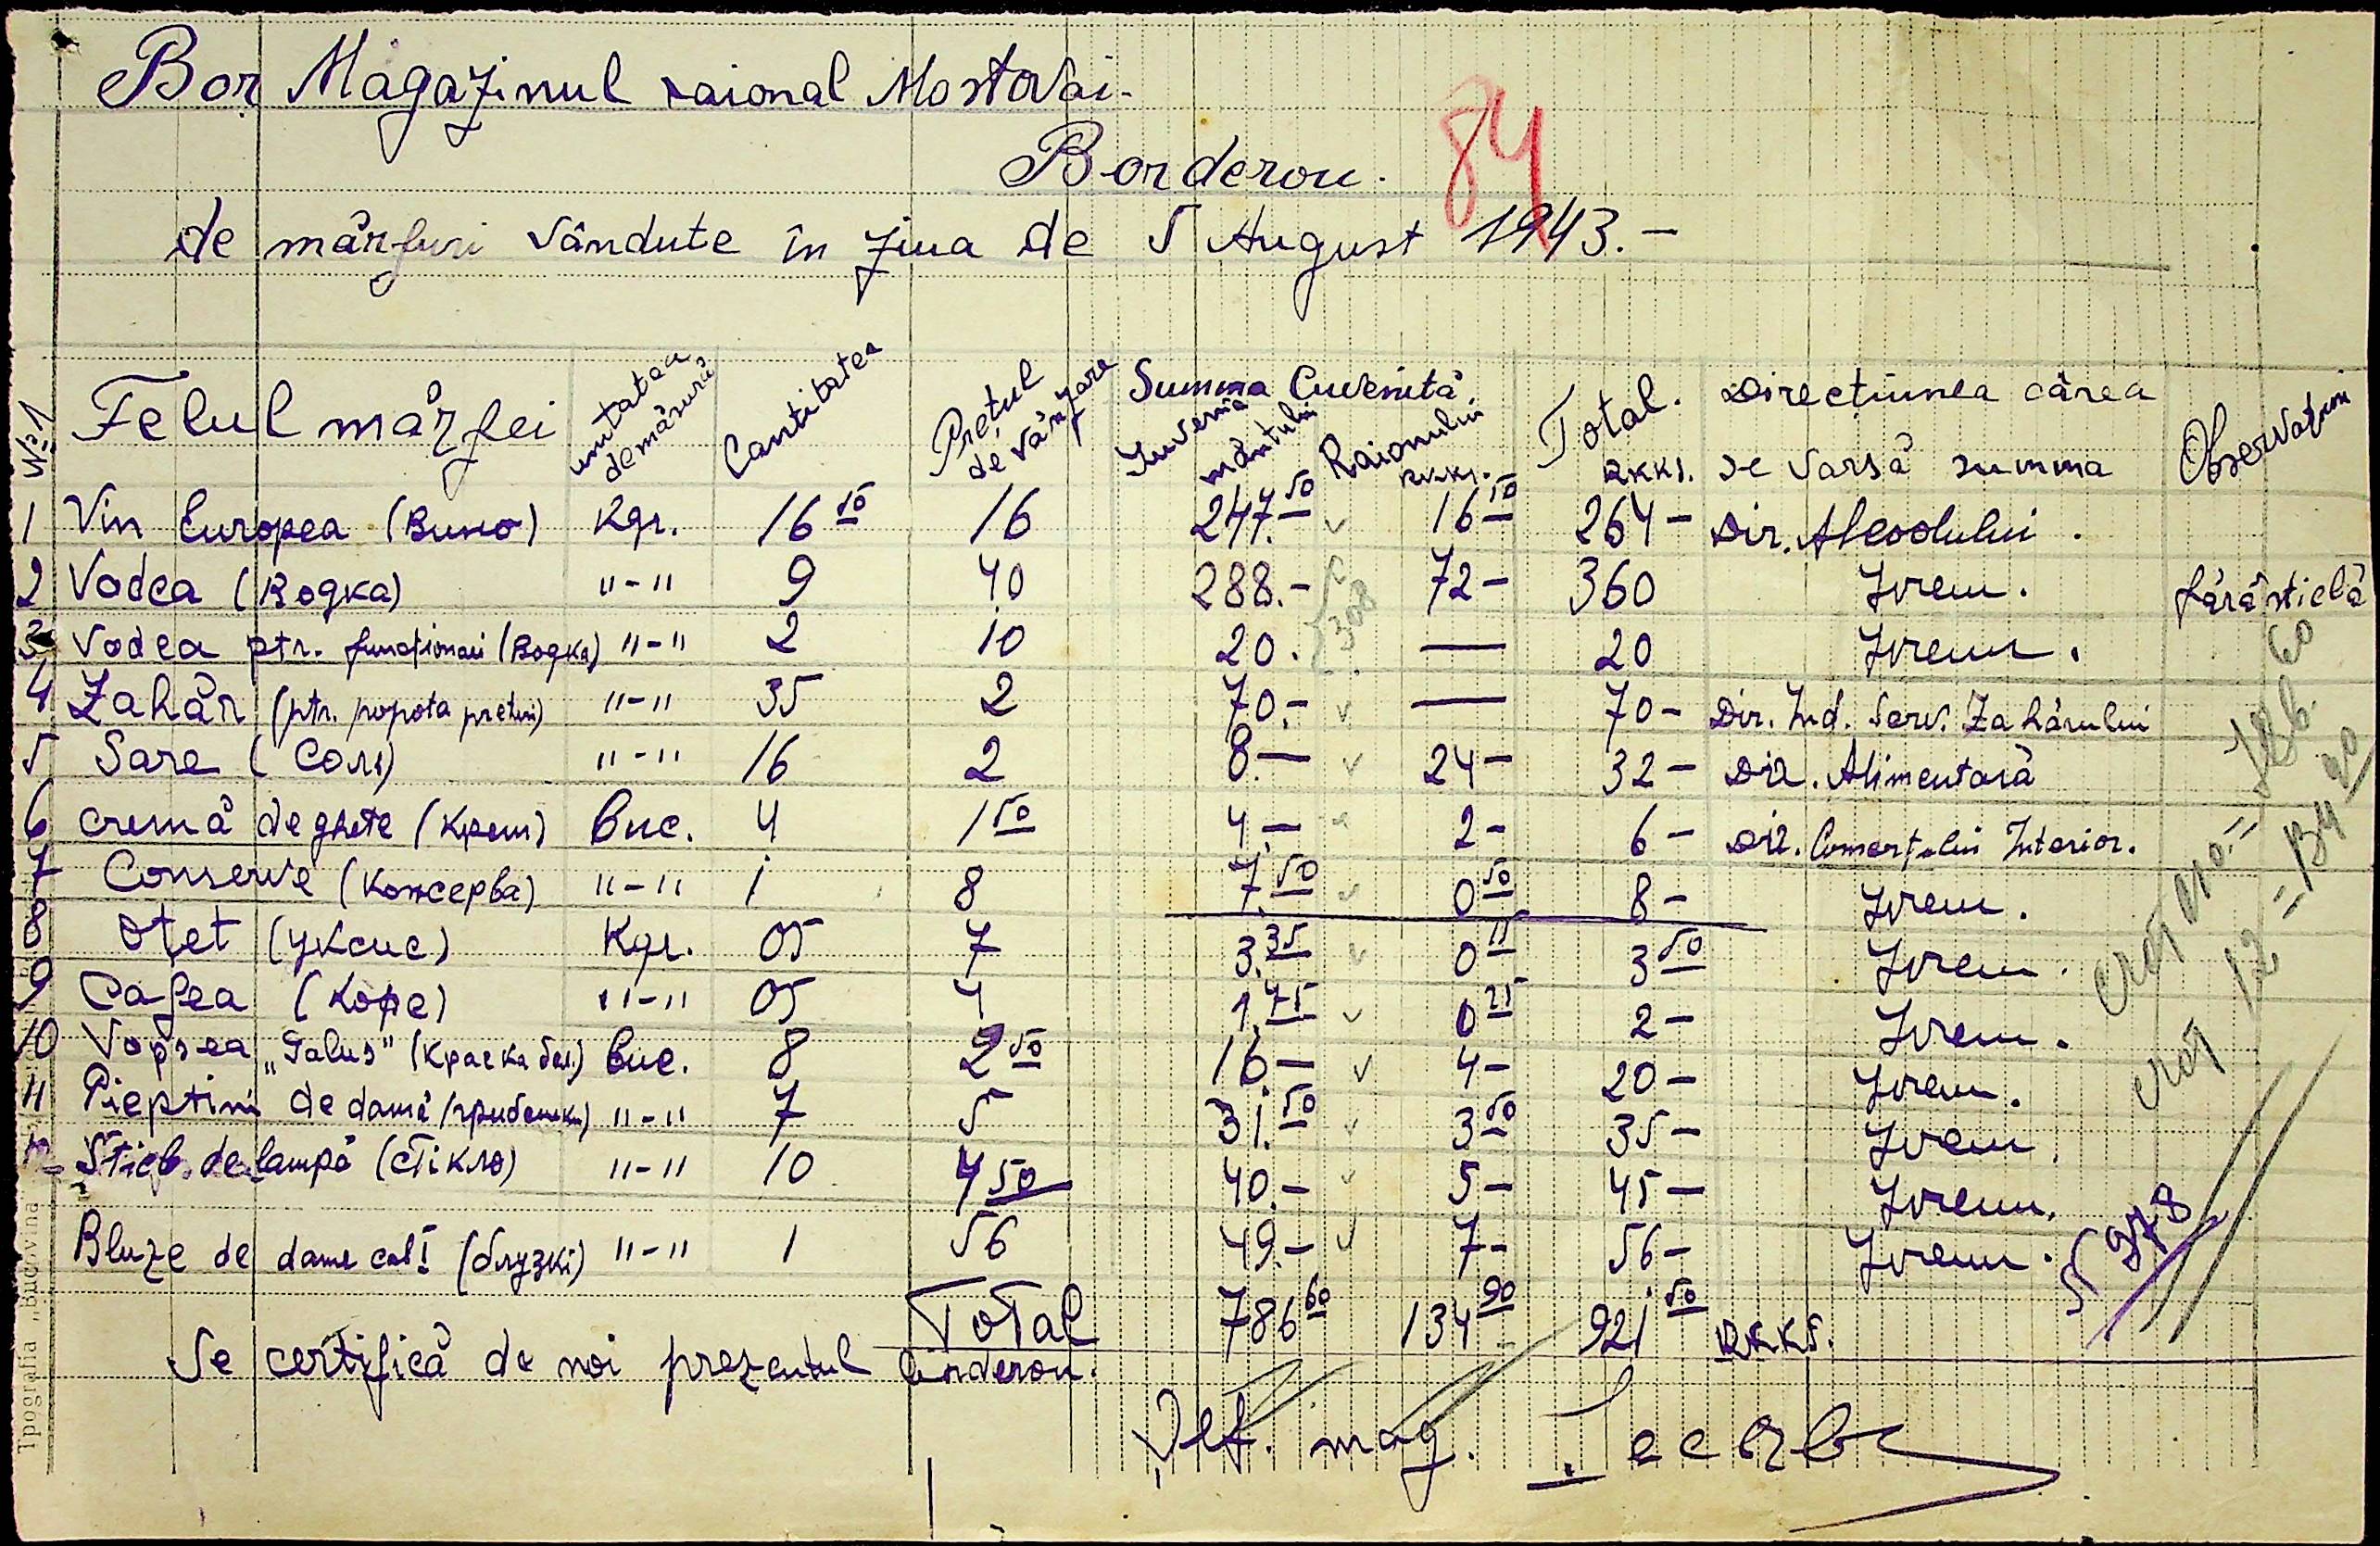 Bor Magazinul raional Mostovoi.-
84
Borderou.
de mărfuri vândute în ziua de 5 August 1943.-
№ Felul mărfei unitatea de măsură Cantitatea Prețul de vânzare Summa Cuvenită Guvernământului Raionului RKKS. Total. RKKS. Direcțiunea cărea se varsă summa Observațiuni
1 Vin Europea (Вино) Kgr. 16 50 16 247.50 16 50 264- Dir. Alcoolului.
2 Vodca (Водка) "-" 9 40 288.- 72- 360 Idem. fără sticlă
3 Vodca ptr. funcționari (Водка) "-" 2 10 20. — 20 Idem.
308
4 Zahăr (ptr. popota preturi) "-" 35 2 70.- — 70- Dir. Ind. Serv. Zahărului
5 Sare (Соль) "-" 16 2 8.- 24- 32- Dir. Alimentară
6 cremă de ghete (Крем) buc. 4 1 50 4.- 2- 6- Dir. Comerțului Interior.
7 Conserve (Консерва) "-" 1 8 7.50 0 50 8- Idem.
8 Oțet (Уксис) Kgr. 05 7 3.35 0 15 3 50 Idem.
9 Cafea (Кофе) "-" 05 4 1.75 0 25 2- Idem.
10 Vopsea „Galus" (Краска бел.) buc. 8 2 50 16- 4- 20- Idem.
11 Piepteni de damă (гребешки) "-" 7 5 31.50 3 50 35- Idem.
12 Sticl. de lampă (Стікло) "-" 10 4 50 40.- 5- 45- Idem.
Bluze de dame cal I (блузкі) "-" 1 56 49.- 7- 56- Idem.
Total 786 60 134 90 921 50 RKKS.
Se certifică de noi prezentul borderou.
Șef. mag.
786.60
12 = 134 90
378
Tpografia „Bucovina